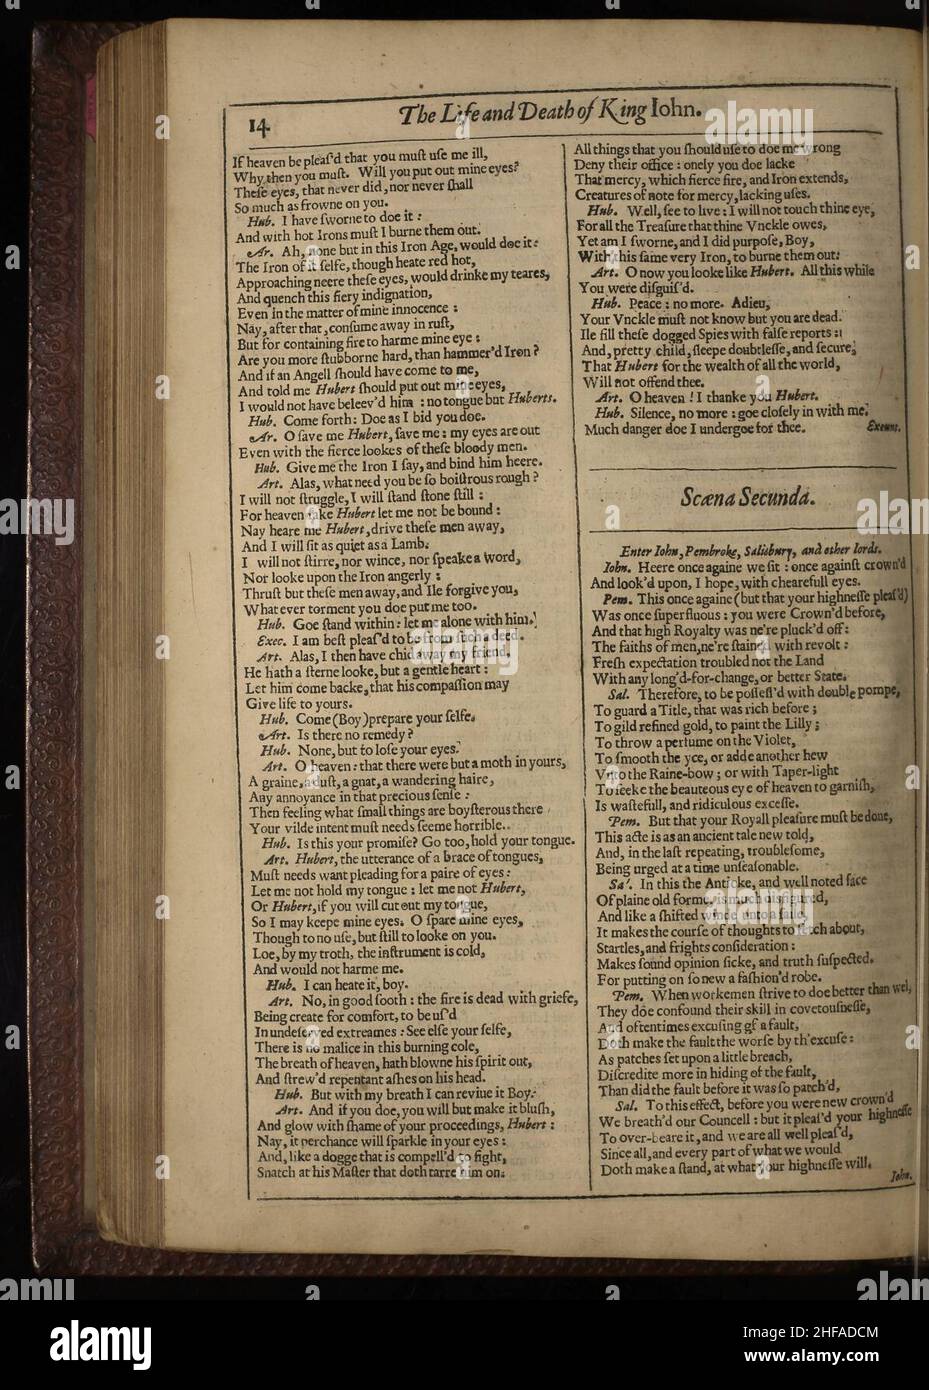 14
The Life and Death of King Iohn.
If heauen be pleaſ'd that you muſt vſe me ill,
Why then you muſt. Will you put out mine eyes?
Theſe eyes, that neuer did, nor neuer ſhall
So much as frowne on you.
Hub. I haue ſworne to doe it:
And with hot Irons muſt I burne them out.
Ar. Ah, none but in this Iron Age, would doe it:
The Iron of it ſelfe, though heate red hot,
Approaching neere theſe eyes, would drinke my teares,
And quench this fiery indignation,
Euen in the matter of mine innocence:
Nay, after that, conſume away in ruſt,
But for containing fire to harme mine eye:
Are you more ſtubborne hard, than hammer'd Iron?
And if an Angell ſhould haue come to me,
And told me Hubert ſhould put out mine eyes,
I would not haue beleev'd him: no tongue but Huberts.
Hub. Come forth: Doe as I bid you doe.
Ar. O ſaue me Hubert, ſaue me: my eyes are out
Euen with the fierce lookes of theſe bloody men.
Hub. Giue me the Iron I ſay, and bind him heere.
Art. Alas, what need you be ſo boiſtrous rough?
I will not ſtruggle, I will ſtand ſtone ſtill:
For heauen ſake Hubert let me not be bound:
Nay heare me Hubert, driue theſe men away,
And I will ſit as quiet as a Lamb.
I will not ſtirre, nor wince, nor ſpeake a word,
Nor looke vpon the Iron angerly:
Thruſt but theſe men away, and Ile forgiue you,
What euer torment you doe put me too.
Hub. Goe ſtand within: let me alone with him.
Exec. I am beſt pleaſ'd to be from ſuch a deed.
Art. Alas, I then haue chid away my friend,
He hath a ſterne looke, but a gentle heart:
Let him come backe, that his compaſſion may
Giue life to yours.
Hub. Come (Boy) prepare your ſelfe.
Art. Is there no remedy?
Hub. None, but to loſe your eyes.
Art. O heauen: that there were but a moth in yours,
A graine, a duſt, a gnat, a wandering haire,
Any annoyance in that precious ſenſe:
Then feeling what ſmall things are boyſterous there
Your vilde intent muſt needs ſeeme horrible.
Hub. Is this your promiſe? Go too, hold your tongue.
Art. Hubert, the vtterance of a brace of tongues,
Muſt needs want pleading for a paire of eyes:
Let me not hold my tongue: let me not Hubert,
Or Hubert, if you will cut out my tongue,
So I may keepe mine eyes. O ſpare mine eyes,
Though to no vſe, but ſtill to looke on you.
Loe, by my troth, the inſtrument is cold,
And would not harme me.
Hub. I can heate it, boy.
Art. No, in good ſooth: the fire is dead with griefe,
Being create for comfort, to be vſ'd
In vndeſerved extreames: See elſe your ſelfe,
There is no malice in this burning cole,
The breath of heauen, hath blowne his ſpirit out,
And ſtrew'd repentant aſhes on his head.
Hub. But with my breath I can reviue it Boy.
Art. And if you doe, you will but make it bluſh,
And glow with ſhame of your proceedings, Hubert:
Nay, it perchance will ſparkle in your eyes:
And, like a dogge that is compell'd to fight,
Snatch at his Maſter that doth tarre him on.
All things that you ſhould vſe to doe me wrong
Deny their office: onely you doe lacke
That mercy, which fierce fire, and Iron extends,
Creatures of note for mercy, lacking vſes.
Hub. Well, ſee to liue: I will not touch thine eye,
For all the Treaſure that thine Vnckle owes,
Yet am I ſworne, and I did purpoſe, Boy,
With this ſame very Iron, to burne them out.
Art. O now you looke like Hubert. All this while
You were diſguiſ'd.
Hub. Peace: no more. Adieu,
Your Vnckle muſt not know but you are dead.
Ile fill theſe dogged Spies with falſe reports:
And, pretty child, ſleepe doubtleſſe, and ſecure,
That Hubert for the wealth of all the world,
Will not offend thee.
Art. O heauen! I thanke you Hubert.
Hub. Silence, no more: goe cloſely in with me,
Much danger doe I vndergoe for thee. Exeunt.
Scæna Secunda.
Enter Iohn, Pembroke, Salisbury, and other lords.
Iohn. Heere once againe we ſit: once againſt crown'd
And look'd vpon, I hope, with chearefull eyes.
Pem. This once againe (but that your highneſſe pleaſ'd)
Was once ſuperfluous: you were Crown'd before,
And that high Royalty was ne're pluck'd off:
The faiths of men, ne're ſtained with revolt:
Freſh expectation troubled not the Land
With any long'd-for-change, or better State.
Sal. Therefore, to be poſſeſſ'd with double pompe,
To guard a Title, that was rich before;
To gild refined gold, to paint the Lilly;
To throw a perfume on the Violet,
To ſmooth the yce, or adde another hew
Vnto the Raine-bow; or with Taper-light
To ſeeke the beauteous eye of heauen to garniſh,
Is waſtefull, and ridiculous exceſſe.
Pem. But that your Royall pleaſure muſt be done,
This acte is as an ancient tale new told,
And, in the laſt repeating, troubleſome,
Being vrged at a time vnſeaſonable.
Sal. In this the Anticke, and well noted face
Of plaine old forme, is much disfigured,
And like a ſhifted winde vnto a ſaile,
It makes the courſe of thoughts to fetch about,
Startles, and frights conſideration:
Makes ſound opinion ſicke, and truth ſuſpected.
For putting on ſo new a faſhion'd robe.
Pem. When workemen ſtriue to doe better than wel,
They doe confound their skill in covetouſneſſe,
And oftentimes excuſing of a fault,
Doth make the fault the worſe by th'excuſe:
As patches ſet vpon a little breach,
Diſcredite more in hiding of the fault,
Than did the fault before it was ſo patch'd.
Sal. To this effect, before you were new crown'd
We breath'd our Councell: but it pleaſ'd your highneſſe
To over-beare it, and we are all well pleaſ'd,
Since all, and euery part of what we would
Doth make a ſtand, at what your highneſſe will.
Iohn.
alamy
alamy
alamy
Image ID: 2HFADCM
www.alamy.com